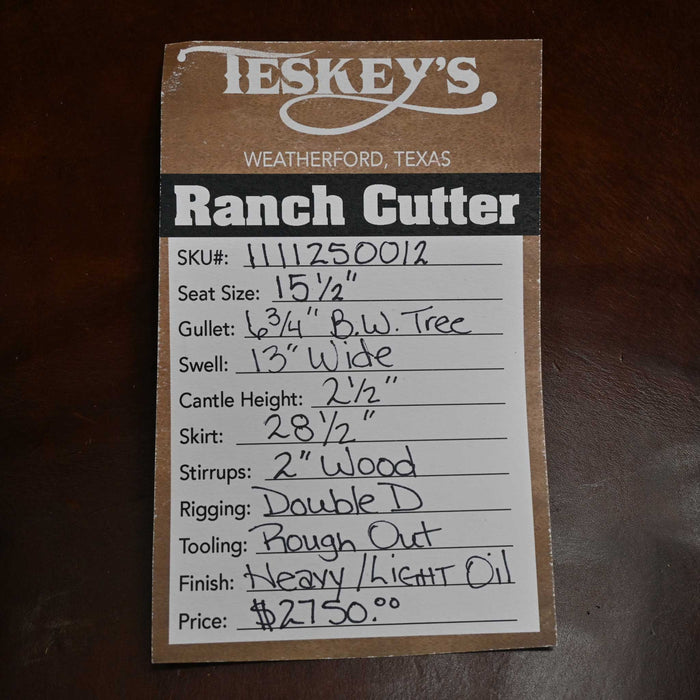 TESKEY'S
WEATHERFORD, TEXAS
Ranch Cutter
SKU#: 1111250012
Seat Size: 15 1/2"
Gullet: 6 3/4" B.W. Tree
Swell: 13" Wide
Cantle Height: 2 1/2"
Skirt: 28 1/2"
Stirrups: 2" Wood
Rigging: Double D
Tooling: Rough Out
Finish: Heavy/LIGHT Oil
Price: $2750.00